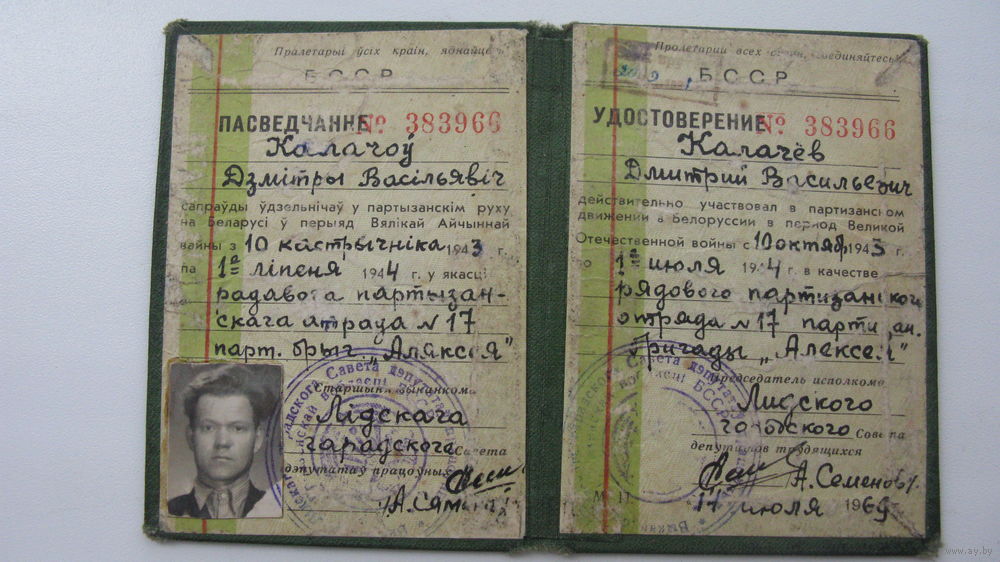 Пралетарыі ўсіх краін, яднайцеся
БССР
ПАСВЕДЧАННЕ № 383966
Калачоў
Дзмітры Васільявіч
сапраўды ўдзельнічаў у партызанскім руху
на Беларусі ў перыяд Вялікай Айчыннай
вайны з 10 кастрычніка 1943 г.
па 1га ліпеня 1944 г. у якасці
радавога партызан-
скага атрада N 17
парт. брыг. „Аляксея"
Старшыня выканкома
Лідскага
гарадскога Савета
дэпутатаў працоўных
Пролетарии всех стран, соединяйтесь
БССР
УДОСТОВЕРЕНИЕ № 383966
Калачёв
Дмитрий Васильевич
действительно участвовал в партизанском
движении в Белоруссии в период Великой
Отечественной войны с 10 октябр 1943 г.
по 1го июля 1944 г. в качестве
рядового партизанского
отряда N 17 партизан.
бригады „Алексея"
Председатель исполкома
Лидского
городского Совета
депутатов трудящихся
А. Семенов
17 июля 1969
www.ay.by